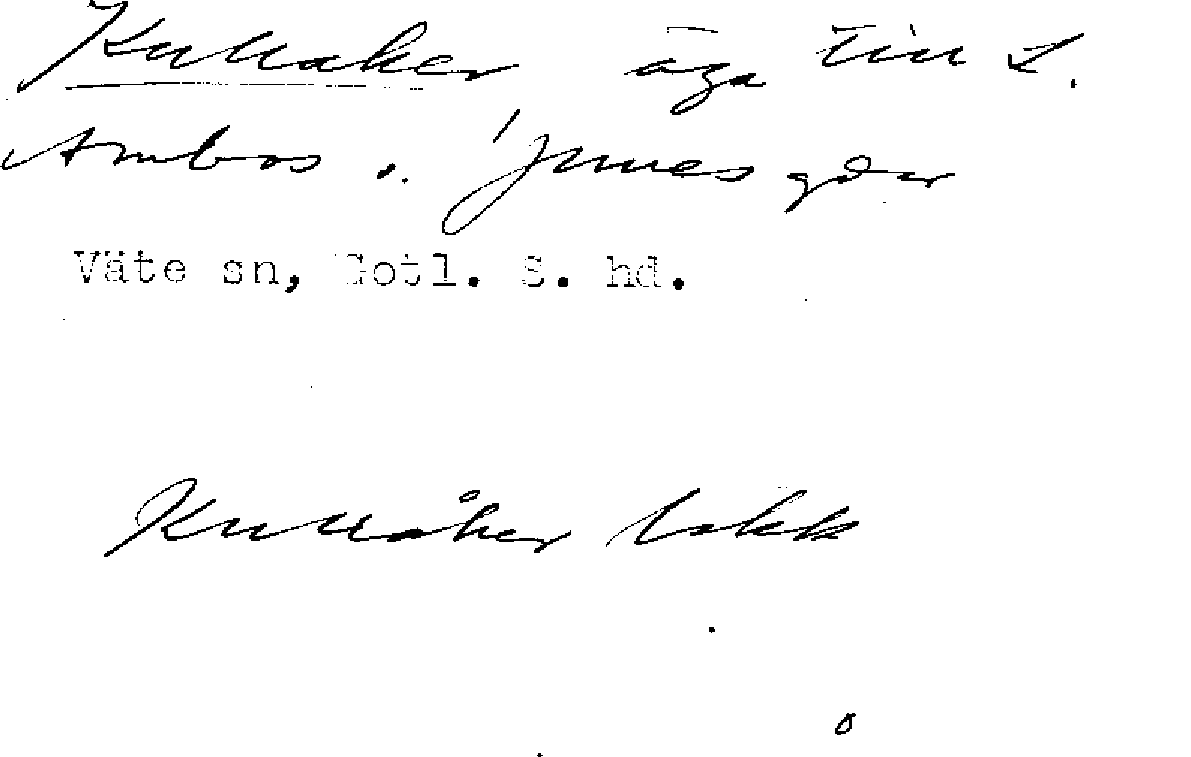 Kullaker äga till L.
Ambos o. Junes gdar
Väte sn, Gotl. S. hd.
Kullåker bakk